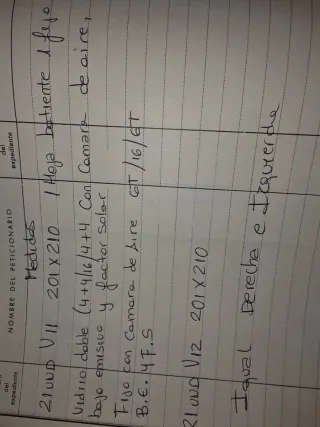 del
expediente
NOMBRE DEL PETICIONARIO
del
expediente
Medidas
21 UND V11 201X210 1 Hoja batiente 1 fijo
Vidrio doble (4+4/16/4+4 Con Camara de aire,
bajo emisivo y factor solar
Fijo con camara de Aire 6T/16/6T
B.E. 4F.S
21 UND V12 201X210
Igual Derecha e Izquierda